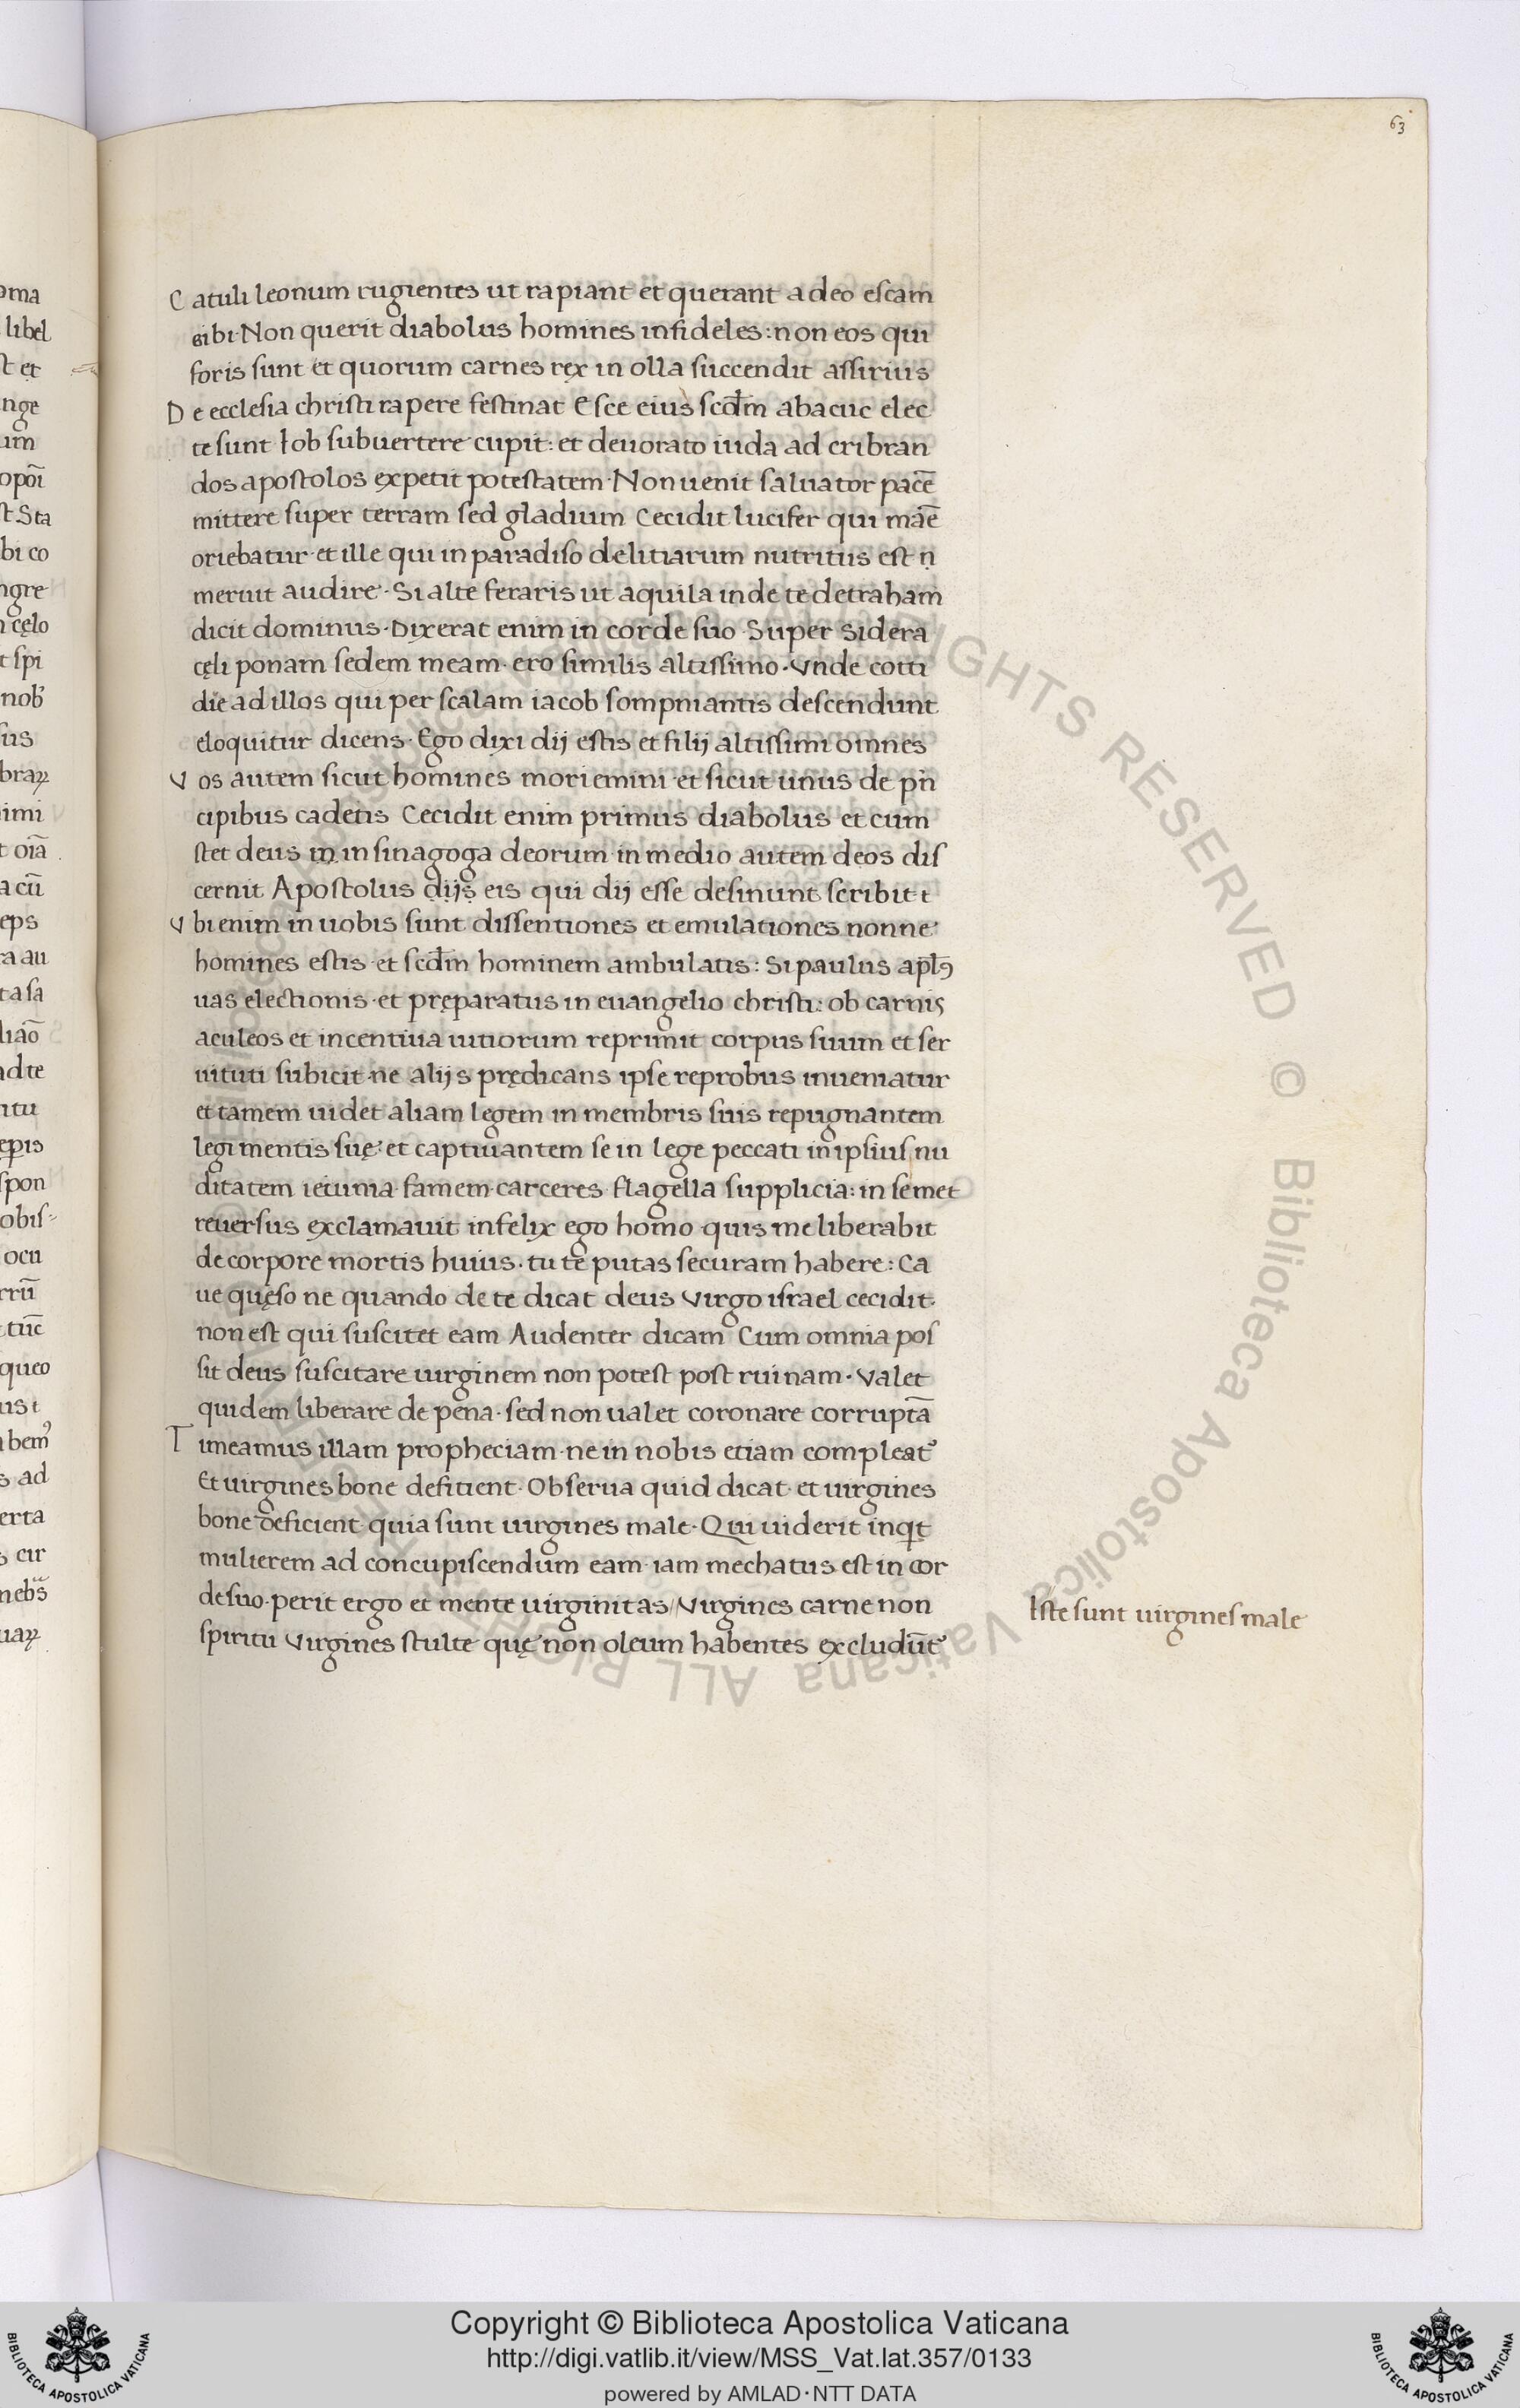 63
Catuli leonum rugientes ut rapiant et querant a deo escam
sibi·Non querit diabolus homines infideles: non eos qui
foris sunt et quorum carnes rex in olla succendit assirius
De ecclesia christi rapere festinat Esce eius scdm̄ abacuc elec
te sunt Iob subuertere cupit: et deuorato iuda ad cribran
dos apostolos expetit potestatem·Non uenit saluator pacē
mittere super terram sed gladium Cecidit lucifer qui māe
oriebatur·et ille qui in paradiso delitiarum nutritus est ṇ
meruit audire·Si alte feraris ut aquila inde te detraham
dicit dominus·Dixerat enim in corde suo·Super sidera
cęli ponam sedem meam·ero similis altissimo·Vnde cotti
die ad illos qui per scalam iacob sompniantis descendunt
eloquitur dicens·Ego dixi dij estis et filij altissimi omnes
Vos autem sicut homines moriemini·et sicut unus de pn̄
cipibus cadetis Cecidit enim primus diabolus et cum
stet deus ṃ in sinagoga deorum·in medio autem deos dis
cernit Apostolus ḍijṣ eis qui dij esse desinunt scribit t
Vbi enim in uobis sunt dissentiones et emulationes nonne
homines estis·et scdm̄ hominem ambulatis: Si paulus apl̄ꝯ
uas electionis·et pręparatus in euangelio christi: ob carnis
aculeos et incentiua uitiorum reprimit corpus suum et ser
uituti subicit·ne alijs prędicans ipse reprobus inueniatur
et tamem uidet aliam legem in membris suis repugnantem
legi mentis suę: et captiuantem se in lege peccati in ipsius nu
ditatem ieiunia·famem·carceres·flagella supplicia: in semet
reuersus exclamauit infelix ego homo quis me liberabit
de corpore mortis huius·tu te putas securam habere: Ca
ue quęso ne quando de te dicat deus Virgo israel cecidit·
non est qui suscitet eam Audenter dicam Cum omnia pos
sit deus suscitare uirginem non potest post ruinam·Valet
quidem liberare de pena·sed non ualet coronare corruptā
Timeamus illam propheciam·ne in nobis etiam compleat᷑
Et uirgines bone defitient·Obserua quid dicat·et uirgines
bone deficient quia sunt uirgines male·Qui uiderit inqt
mulierem ad concupiscendum eam·iam mechatus est in cor
de suo·perit ergo et mente uirginitas/Virgines carne non
spiritu Virgines stulte quę non oleum habentes excludūt᷑
Iste sunt uirgines male
ALL RIGHTS RESERVED © Biblioteca Apostolica Vaticana
Copyright © Biblioteca Apostolica Vaticana
http://digi.vatlib.it/view/MSS_Vat.lat.357/0133
powered by AMLAD·NTT DATA
BIBLIOTECA APOSTOLICA VATICANA
BIBLIOTECA APOSTOLICA VATICANA